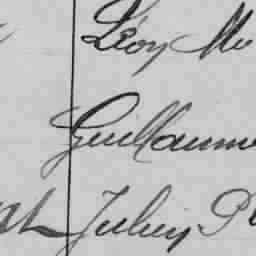 Léon Mo
Guillaume
Julien P